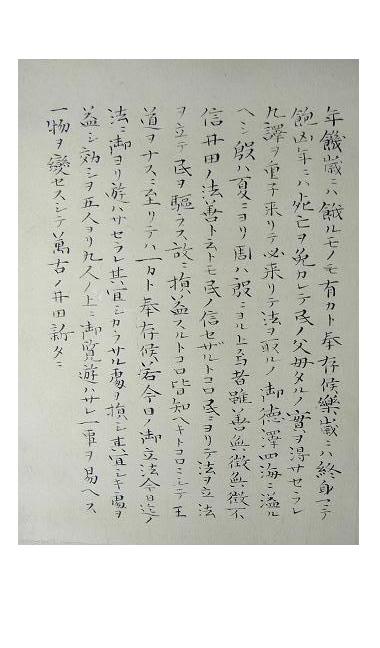 年饑歳ニハ餓ルモノモ有カト奉存候樂歳ニハ終身マテ
飽凶年ニハ死亡ヲ免カレテ民ノ父母タルノ實ヲ得サセラレ
九譯ヲ重子来リテ必来リテ法ヲ取ルノ御德澤四海ニ溢ル
ヘシ殷ハ夏ニヨリ周ハ殷ニヨル上焉者雖善無徴無徴不
信井田ノ法善ト云トモ民ノ信セザルトコロ民ニヨリテ法ヲ立法
ヲ立テ民ヲ驅ラス故ニ損益スルトコロ皆知ヘキトコロニシテ王
道ヲナスニ至リテハ一カト奉存候若今日ノ御立法今日迄ノ
法ニ御ヨリ遊ハサセラレ其宜シカラサル處ヲ損シ其宜シキ處ヲ
益シ効シヲ五人ヨリ九人ノ上ニ御覧遊ハサレ一軍ヲ易ヘス
一物ヲ變セスシテ萬古ノ井田新タニ